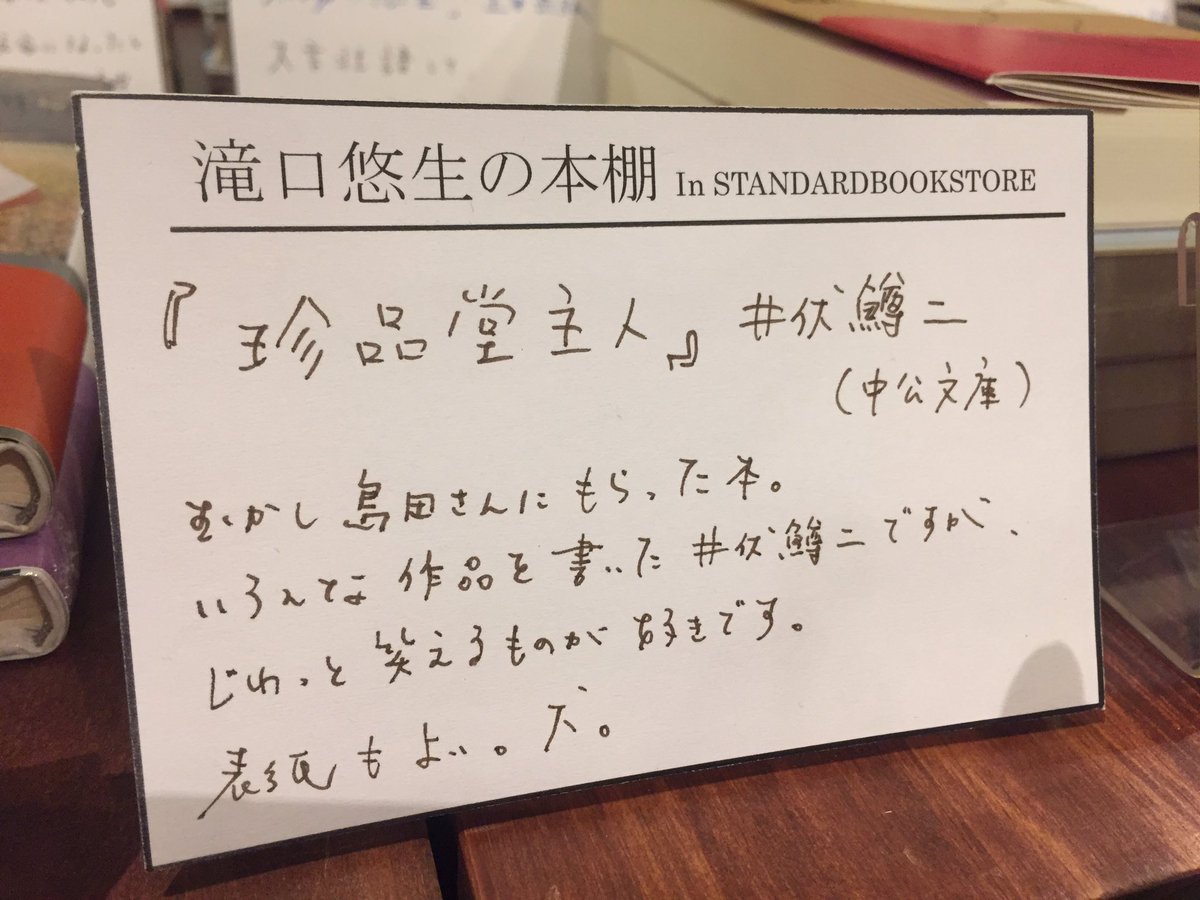 滝口悠生の本棚 In STANDARDBOOKSTORE
『珍品堂主人』井伏鱒二
(中公文庫)
むかし島田さんにもらった本。
いろんな作品を書いた井伏鱒二ですが、
じわっと笑えるものが好きです。
表紙もよい。犬。